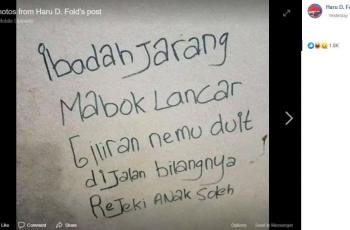 hotos from Haru D. Fold's post
Mobile Uploads
Ibadah Jarang
Mabok Lancar
Giliran nemu duit
diJalan bilangnya
ReJeki ANAK Soleh
Like Comment Share
Send in Messenger
Haru D. F
Yesterday
1.9K